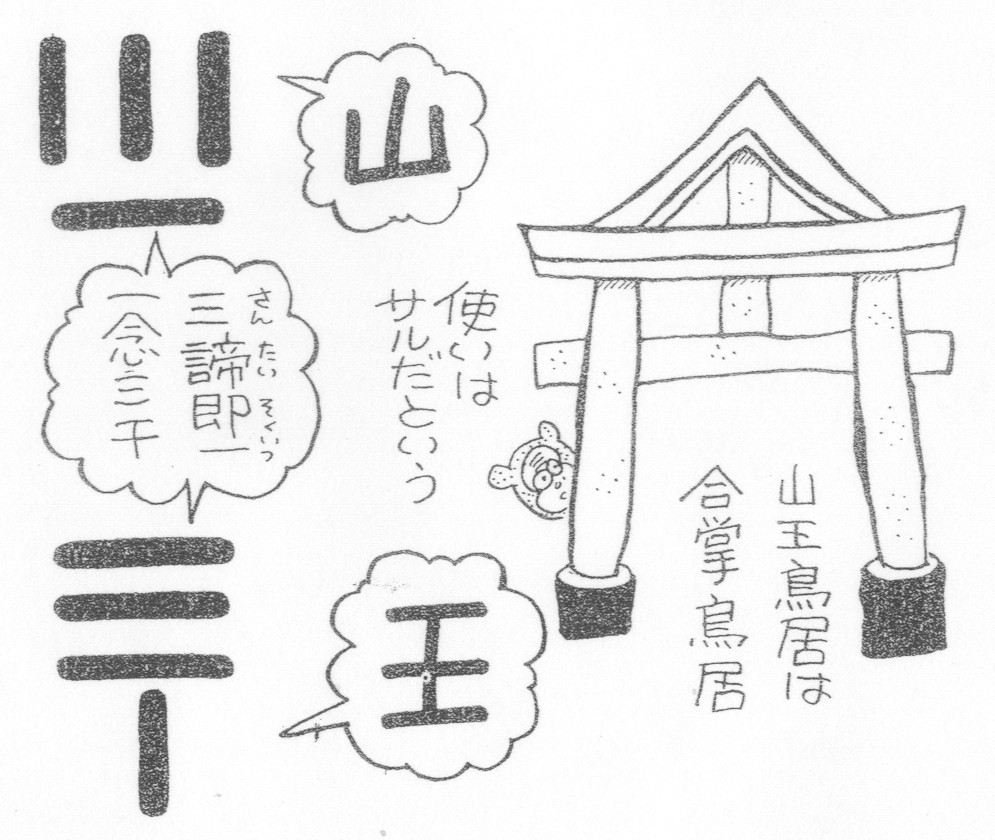 山王鳥居は
合掌鳥居
使いは
サルだという
山
王
三諦即一
さんたいそくいつ
一念三千